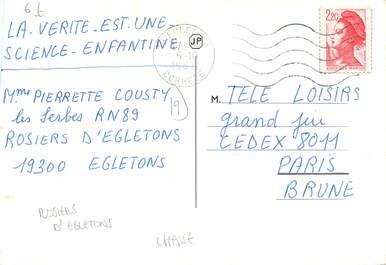 6 £
LA VERITE EST UNE
SCIENCE ENFANTINE
JP
2,20
Mme PIERRETTE COUSTY
les Serbes RN89
ROSIERS D'EGLETONS
19300 EGLETONS
19
M. TELE LOISIRS
grand jeu
CEDEX 8011
PARIS
BRUNE
ROSIERS
D'EGLETONS